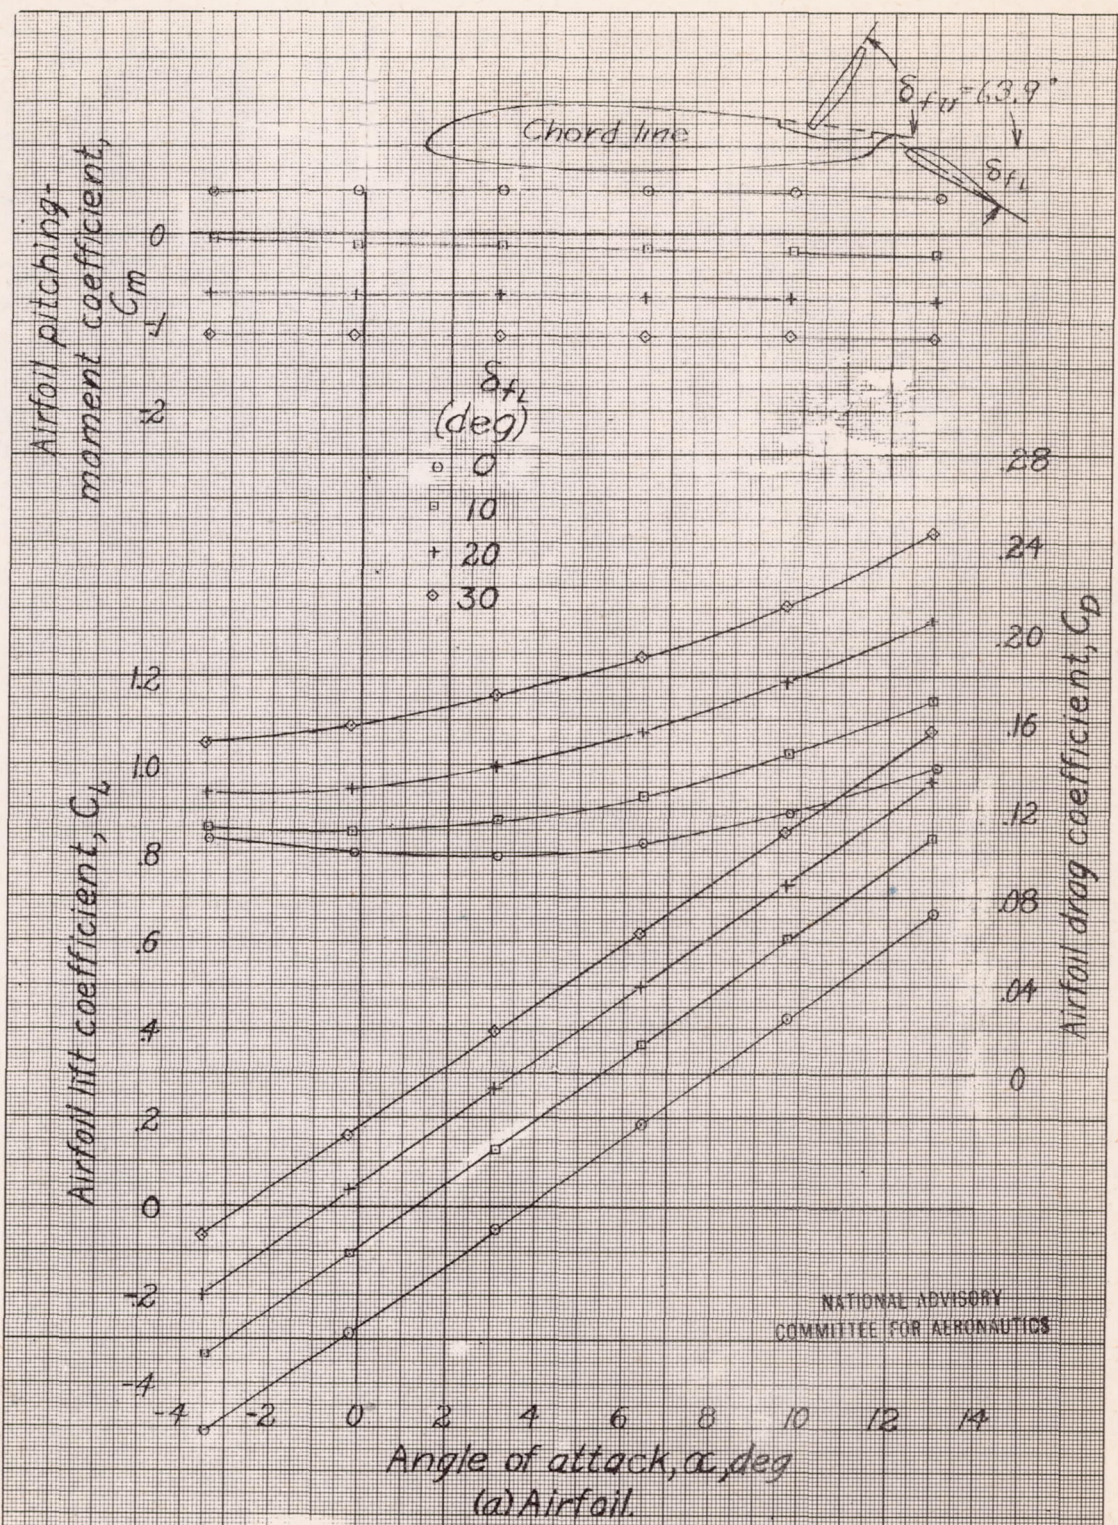 δfu=63.9°
Chord line
δfL
Airfoil pitching-
moment coefficient,
Cm
0
-.1
-.2
δfL
(deg)
0
10
20
30
.28
.24
.20
.16
.12
.08
.04
0
Airfoil drag coefficient, CD
1.2
1.0
.8
.6
.4
.2
0
-.2
-.4
Airfoil lift coefficient, CL
NATIONAL ADVISORY
COMMITTEE FOR AERONAUTICS
-4 -2 0 2 4 6 8 10 12 14
Angle of attack, α, deg
(a) Airfoil.